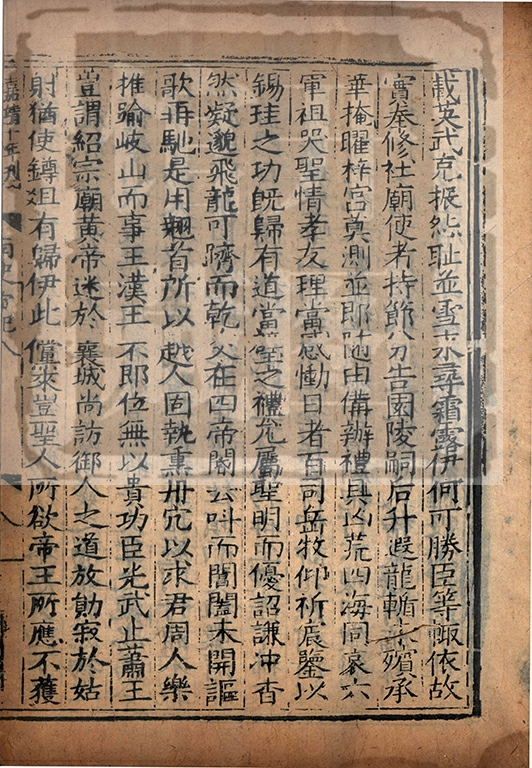 載英武克振怨恥並雪永尋霜露伊何可勝臣等輒依故
實奉修社廟使者持節分告園陵嗣后升遐龍輴未殯承
華掩曜梓宮莫測並即隨由備辦禮具凶荒四海同哀六
軍袒哭聖情孝友理當感慟日者百司岳牧仰祈宸鑒以
錫珪之功既歸有道當璧之禮允屬聖明而優詔謙沖杳
然凝邈飛龍可躋而乾爻在四帝閽云叫而閶闔未開謳
歌再馳是用翹首所以越人固執熏丹穴以求君周人樂
推踰岐山而事王漢王不即位無以貴功臣光武止蕭王
豈謂紹宗廟黃帝迷於襄城尚訪御人之道放勛寂於姑
射猶使鐏俎有歸伊此儻來豈聖人所欲帝王所應不獲
嘉靖十年刊
南史帝紀八
八